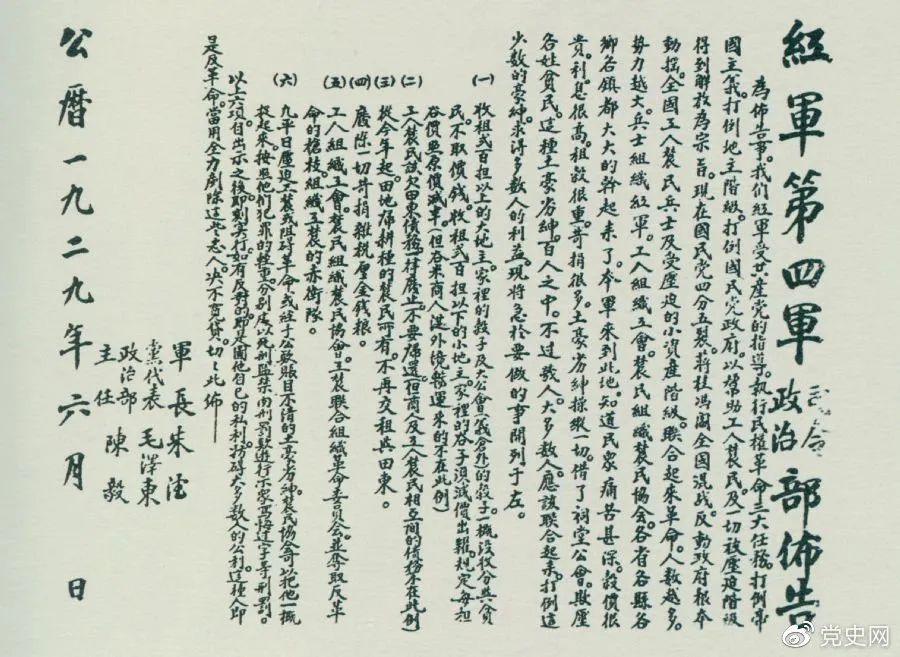 紅軍第四軍司令政治部佈告
為佈告事。我們紅軍受共產黨的指導。執行民權革命三大任務。打倒帝
國主義。打倒地主階級。打倒國民党政府。以幫助工人農民。及一切被壓迫階級
得到解放為宗旨。現在國民黨四分五裂。蔣桂馮閻全國混战。反動政府根本
動搖。全國工人農民兵士及受壓迫的小資產階級。聯合起來革命。人數越多。
势力越大。兵士組織紅軍。工人組織工會。農民組織農民協会。各省各縣各
鄉各鎮都大大的幹起来了。本軍来到此地。知道民衆痛苦甚深。穀價很
貴。利息很高。租穀很重。苛捐很多。土豪劣紳操縱一切。借了祠堂公會。欺壓
各姓貧民。這種土豪劣紳。百人之中。不过数人。大多数人。應該联合起来。打倒這
少数的豪紳。求得多数人的利益。現將急於要做的事開列于左。
(一) 收租弍百担以上的大地主。家裡的穀子及大公會(義倉外)的穀子一概沒收分與貧
民。不取價钱。收租弍百担以下的小地主。家裡的谷子須減價出糶。規定每担
谷價照原價減半。(但谷米商人從外境辦運来的不在此例)
(二) 工人農民該欠田東債務一律廢止。不要歸還。(但商人及工人農民相互間的債務不在此例)
(三) 從今年起。田地歸耕種的農民所有。不再交租與田東。
(四) 廢除一切苛捐雜税厘金錢粮。
(五) 工人組織工會。農民組織農民協會。工農联合組織革命委員会。並奪取反革
命的槍枝。組織工農的赤衛隊。
(六) 凡平日壓迫工農或阻碍革命。或经手公欵賬目不清的土豪劣紳。農民協會可以把他一概
捉起来。按照他们犯罪的軽重。分別处以死刑監禁肉刑罰款遊行示衆寫悔过字等刑罰。
以上六項自出示之後。即刻实行。如有反對的。即是圖他自己的私利。妨碍大多数人的公利。這種人即
是反革命。當用全力剷除這些惡人。决不寛貸。切切此佈——
軍長朱德
黨代表毛澤東
政治部主任陳毅
公曆一九二九年六月 日
党史网